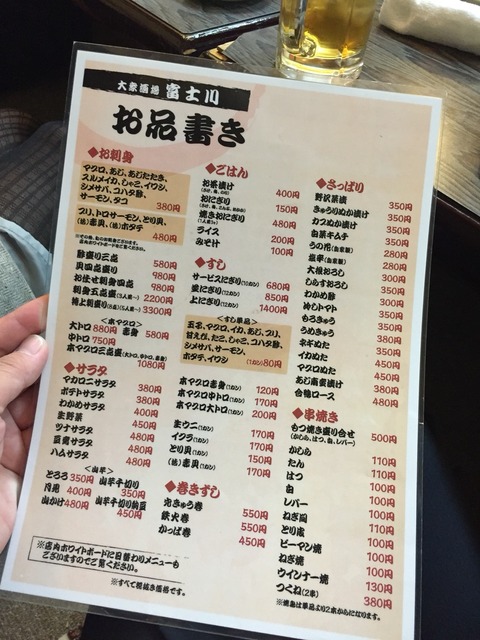 大衆酒場 富士川
お品書き
◆お刺身
マグロ、あじ、あじたたき、
スルメイカ、しゃこ、イワシ、
シメサバ、コハダ酢、
サーモン、タコ 380円
ブリ、トロサーモン、とり貝、
(活)赤貝、(活)ホタテ 480円
酢盛り三点 580円
貝四点盛り 980円
お任せ刺身四点 980円
刺身五点盛(3人前〜) 2200円
特上刺盛り(6点)(5人前〜) 3300円
<本マグロ>
大トロ 880円 赤身 580円
中トロ 750円
本マグロ三点盛(大トロ、中トロ、赤身) 1080円
◆サラダ
マカロニサラダ 380円
ポテトサラダ 380円
わかめサラダ 380円
生野菜 400円
ツナサラダ 450円
豆腐サラダ 480円
ハムサラダ 480円
<山芋>
とろろ 350円 山芋千切り 350円
月見 400円
山かけ 480円 山芋千切り納豆 450円
※店内ホワイトボードに日替わりメニューも
ございますのでご覧ください。
※すべて税抜き価格です。
◆ごはん
お茶漬け 400円
おにぎり 150円
焼きおにぎり 480円
ライス 200円
みそ汁 100円
◆すし
サービスにぎり 680円
並にぎり 850円
上にぎり 1400円
<すし単品>
玉子、マグロ、イカ、あじ、ブリ、
甘えび、たこ、しゃこ、コハダ酢、
シメサバ、サーモン、
ホタテ、イワシ (1カン) 80円
本マグロ赤身(1カン) 120円
本マグロ中トロ(1カン) 170円
本マグロ大トロ(1カン) 200円
生ウニ(1カン) 170円
イクラ(1カン) 170円
とり貝(1カン) 150円
(活)赤貝(1カン) 170円
◆巻きずし
元きゅう巻 550円
鉄火巻 550円
かっぱ巻 450円
◆さっぱり
野沢菜漬 350円
きゅうりぬか漬け 350円
カブぬか漬け 350円
白菜キムチ 350円
うの花(自家製) 280円
塩辛(自家製) 280円
大根おろし 300円
しらすおろし 350円
わかめ酢 300円
冷しトマト 350円
もろきゅう 350円
うめきゅう 380円
ネギぬた 350円
イカぬた 450円
マグロぬた 450円
あじ南蛮漬け 380円
合鴨ロース 480円
◆串焼き
もつ焼き盛り合せ 500円
(かしら、はつ、白、レバー)
かしら 110円
たん 110円
はつ 110円
白 110円
レバー 110円
ねぎ間 110円
とり皮 110円
ピーマン焼 100円
ねぎ焼 100円
ウインナー焼 130円
つくね(2本) 380円
※焼鳥は単品より2本からになります。